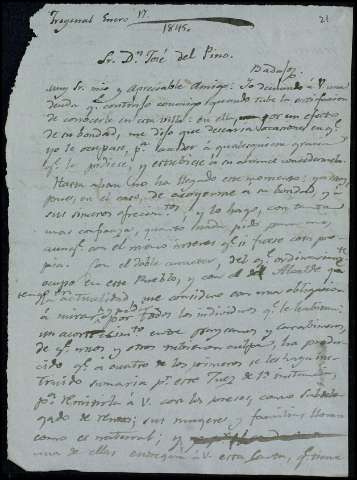 Fregenal Enero 17.
1845.
21
Sr. Dn. José del Pino.
Badajoz
Muy Sr. mio y apreciable amigo: Yo demando á V. una
deuda qe. contrajo conmigo quando tube la satisfaccion
de conocerle en esta villa: en ella, por un efecto
de su bondad, me dijo que desearia ocasiones en qe.
yo le ocupase, pa. á qualesquiera gracia
qe. le pidiese, y estubiese á su alcance concedermela.
Hasta ahora no ha llegado ese momento: ya
pues, en el caso, de acogerme á su bondad, y
sus sinceros ofrecimtos. y lo hago, con tanta
mas confianza, quanto nada pido para mi,
aunqe. con el mismo interes qe. si fuese cosa pro-
pia. Con el doble caracter, del qe. ordinariamte.
ocupo en este Pueblo, y con el de Alcalde qe.
tengo en la actualidad, me considero con una obligacion
á mirar por todos los individuos qe. le habitan:
un acontecimto. entre paysanos y carabineros,
de qe. unos y otros tendran culpa, ha produ-
cido qe. á cuatro de los primeros se les haya ins-
truido sumaria pr. este Juez de 1a. instancia,
pa. remitirla á V. con los presos, como Subde-
legado de rentas; sus mugeres y familias lloran
como es natural; y
una de ellas entregará á V. esta carta, qe. tiene